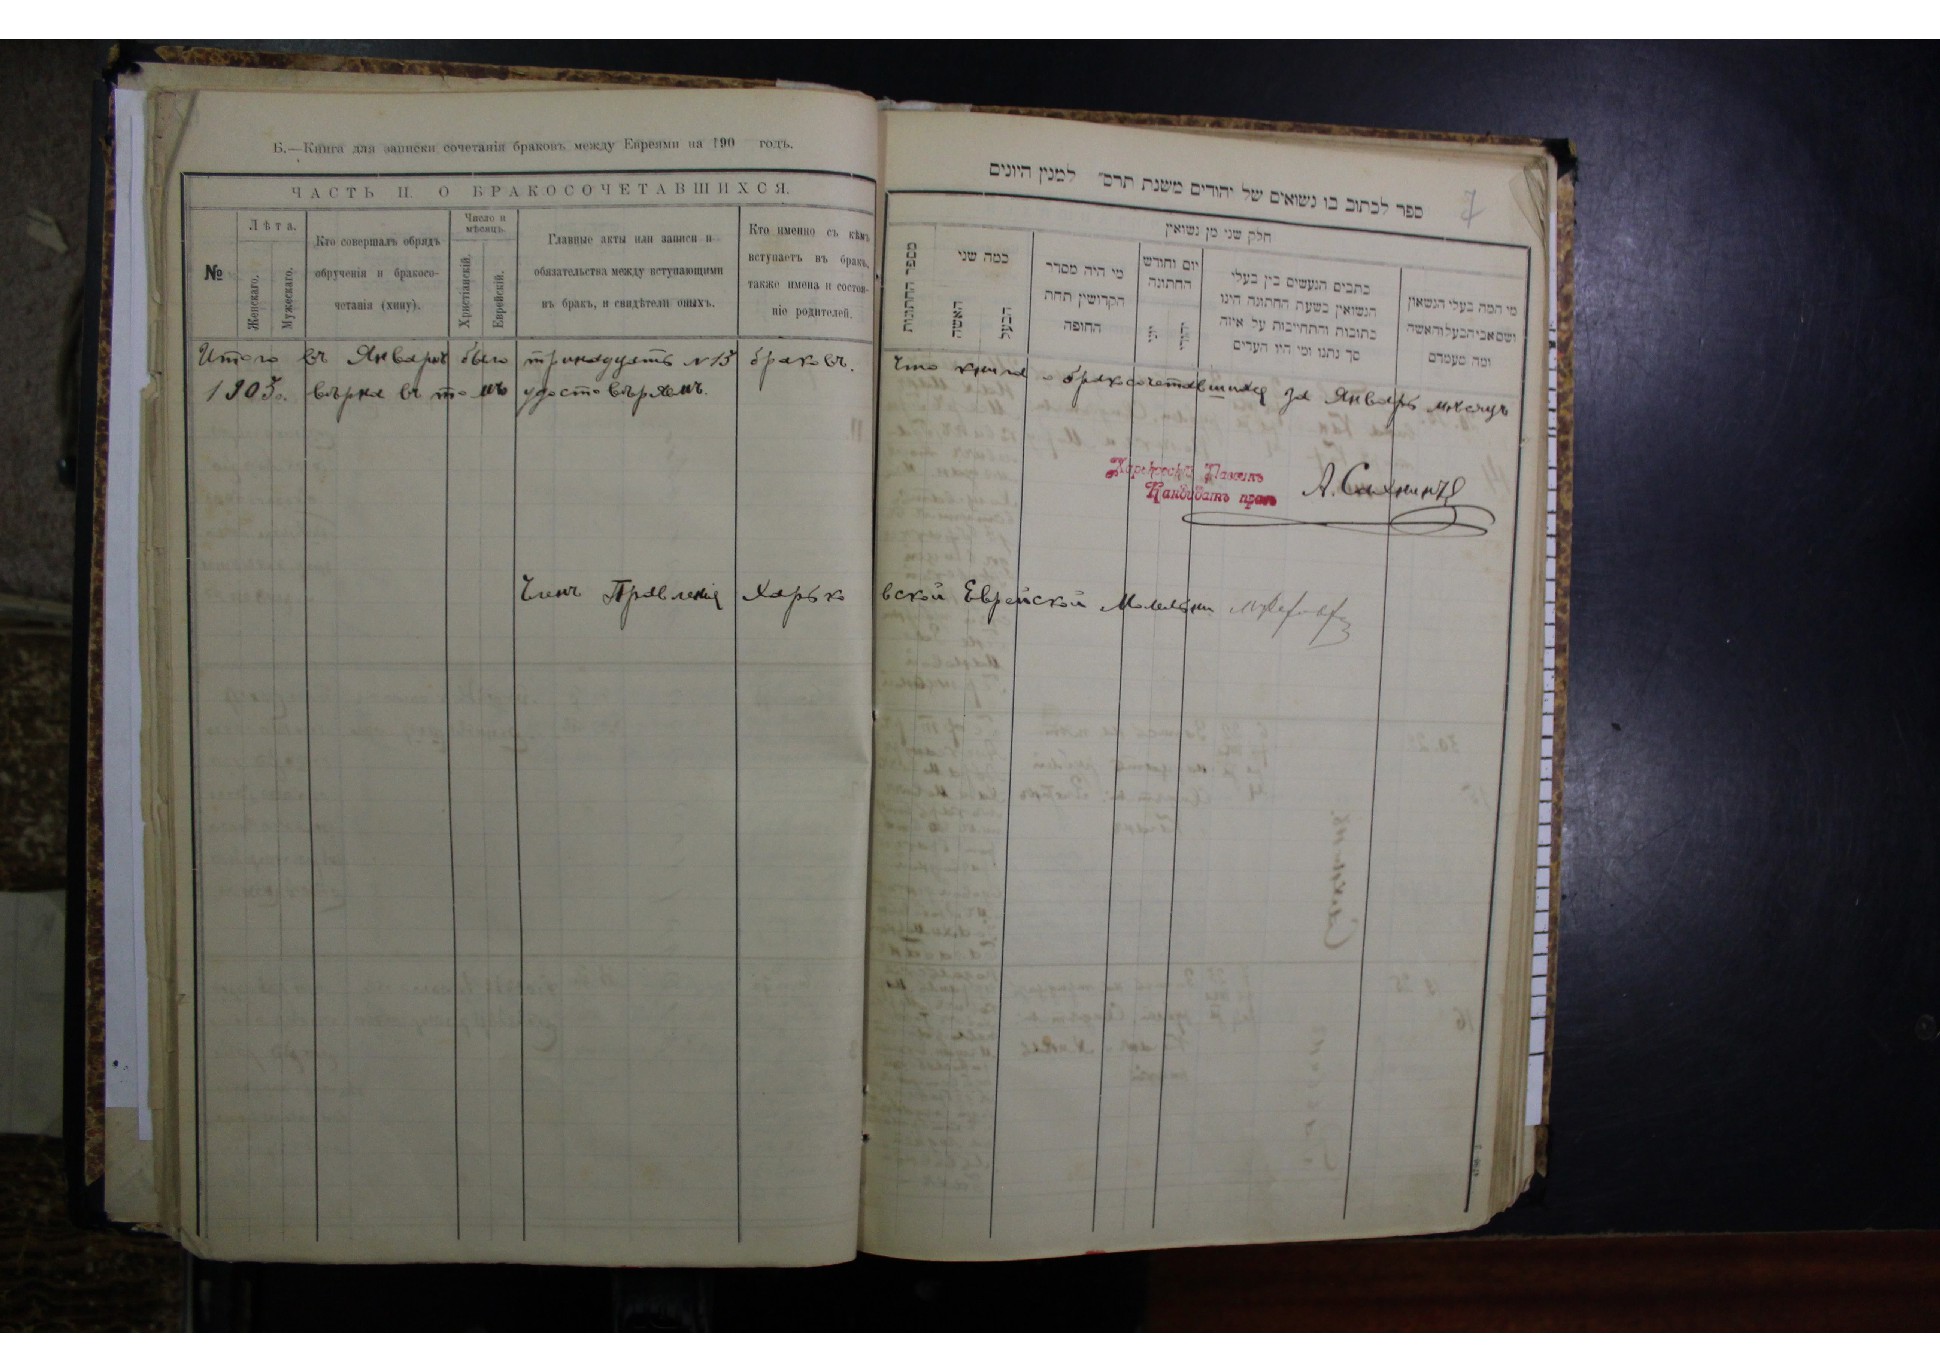 Б.—Книга для записки сочетанія браковъ между Евреями на 190 годъ.
ЧАСТЬ II. О БРАКОСОЧЕТАВШИХСЯ.
№
Лѣта.
Женскаго.
Мужескаго.
Кто совершалъ обрядъ
обрученія и бракосо-
четанія (хину).
Число и
мѣсяцъ.
Христіанскій.
Еврейскій.
Главные акты или записи и
обязательства между вступающими
въ бракъ, и свидѣтели оныхъ.
Кто именно съ кѣмъ
вступаетъ въ бракъ,
также имена и состоя-
ніе родителей.
Итого въ Январѣ было тринадцать №13 браковъ.
1903г. вѣрна въ томъ удостовѣряемъ.
Членъ Правленія Харько
7
ספר לכתוב בו נשואים של יהודים משנת תרס״ למנין היונים
חלק שני מן נשואין
מספר החתונות
כמה שני
האשה
הבעל
מי היה מסדר
הקדושין תחת
החופה
יום וחודש
החתונה
יוני
יהודי
כתבים הנעשים בין בעלי
הנשואין בשעת החתונה היינו
כתובות והתחייבות על איזה
סך נתנו ומי היו העדים
מי המה בעלי הנשואין
ושם אבי הבעל והאשה
ומה מעמדם
Что книга о бракосочетавшихся за Январь мѣсяцъ
Харьковскій Раввинъ
Кандидатъ правъ
А.
вской Еврейской Молельни